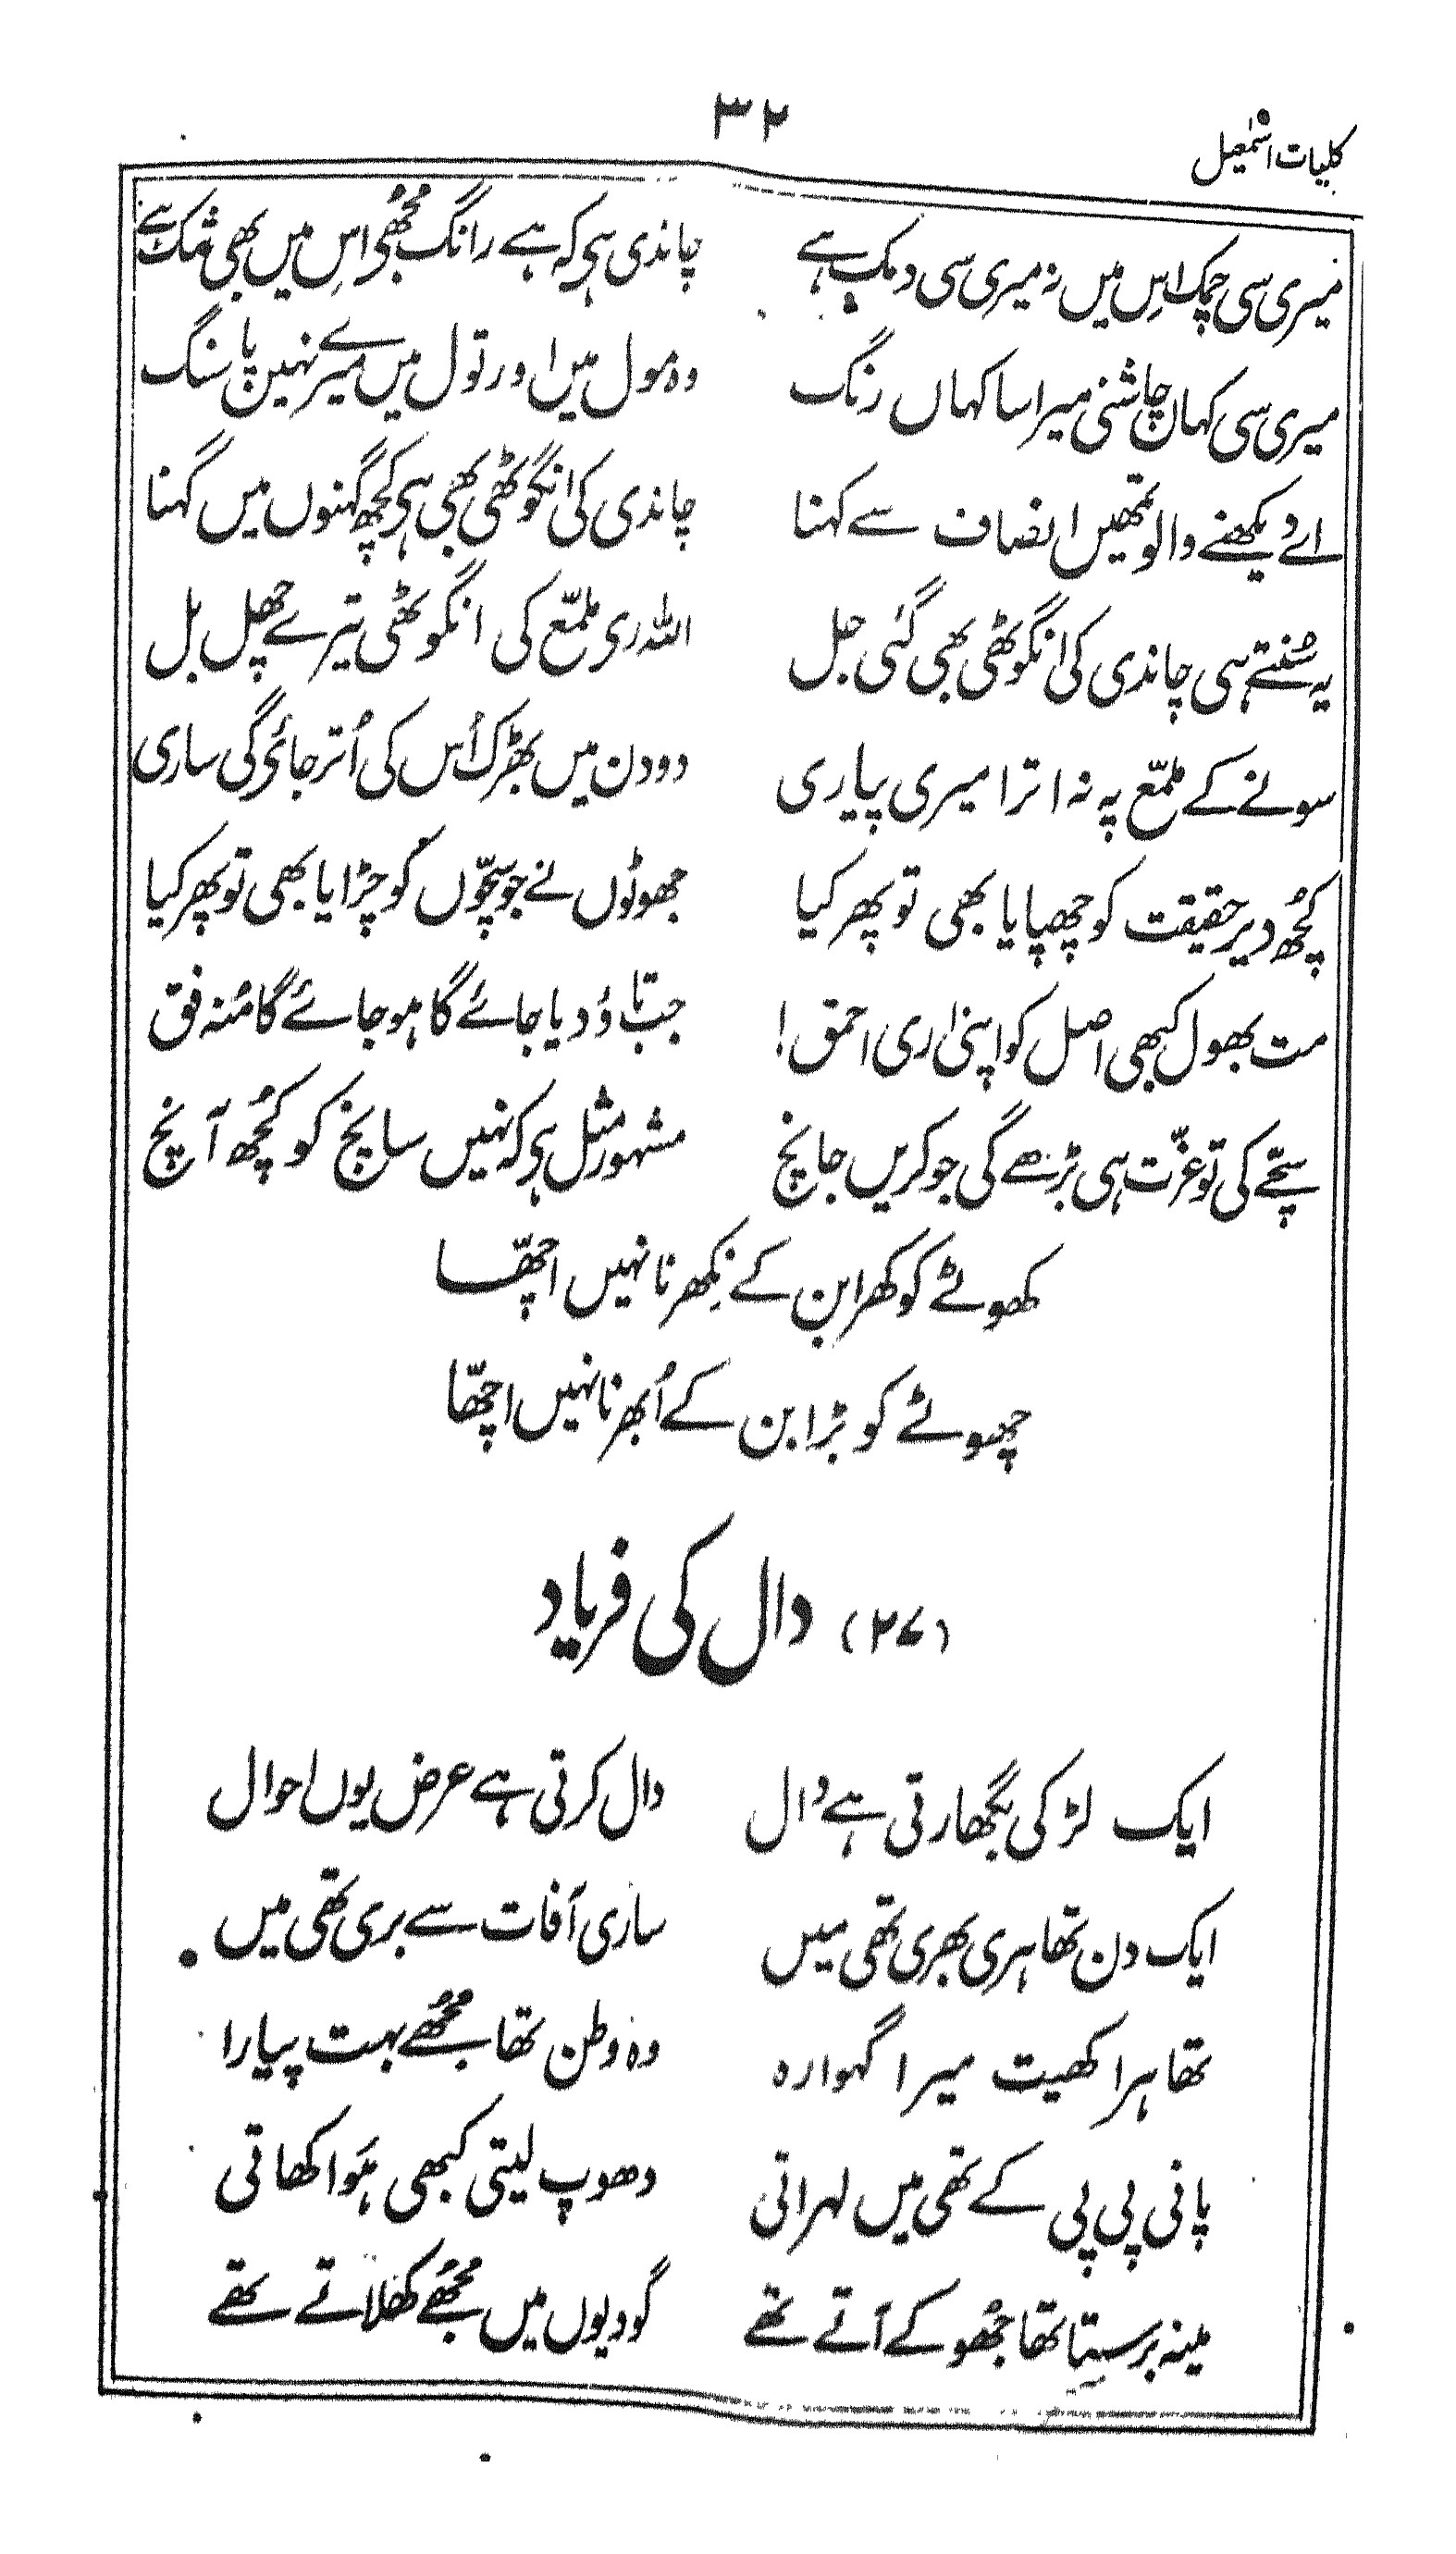 ۳۲
کلیات اسمٰعیل
میری سی چمک اِس میں نہ میری سی دمک ہے
چاندی ہی کہ ہے رانگ مُجھُے اِس میں بھی شک ہے
میری سی کہاں چاشنی میرا سا کہاں رنگ
وہ مول میں اور تول میں میرے نہیں پاسنگ
اے دیکھنے والو تمھیں انصاف سے کہنا
چاندی کی انگوٹھی بھی ہی کچھ گہنوں میں گہنا
یہ سُنتے ہی چاندی کی انگوٹھی بھی گئی جل
اللہ ری ملمّع کی انگوٹھی تیرے چھل بل
سونے کے ملمّع پہ نہ اترا میری پیاری
دو دن میں بھڑک اُس کی اُتر جائے گی ساری
کُچھ دیر حقیقت کو چھپایا بھی تو پھر کیا
جھوٹوں نے جو سچّوں کو چڑایا بھی تو پھر کیا
مت بھول کبھی اصل کو اپنی اری احمق!
جب تاؤ دیا جائے گا ہو جائے گا مُنہ فق
سچّے کی تو عزّت ہی بڑھے گی جو کریں جانچ
مشہور مثل ہی کہ نہیں سانچ کو کُچھ آنچ
کھوٹے کو کھرا بن کے نِکھرنا نہیں اچھّا
چھوٹے کو بڑا بن کے اُبھرنا نہیں اچھّا
(۲۷) دال کی فریاد
ایک لڑکی بگھارتی ہے دال
دال کرتی ہے عرض یوں احوال
ایک دن تھا ہری بھری تھی میں
ساری آفات سے بری تھی میں
تھا ہرا کھیت میرا گہوارہ
وہ وطن تھا مُجھُے بہت پیارا
پانی پی پی کے تھی میں لہراتی
دھوپ لیتی کبھی ہَوا کھاتی
مینہ برستا تھا جھوکے آتے تھے
گودیوں میں مُجھُے کھلاتے تھے